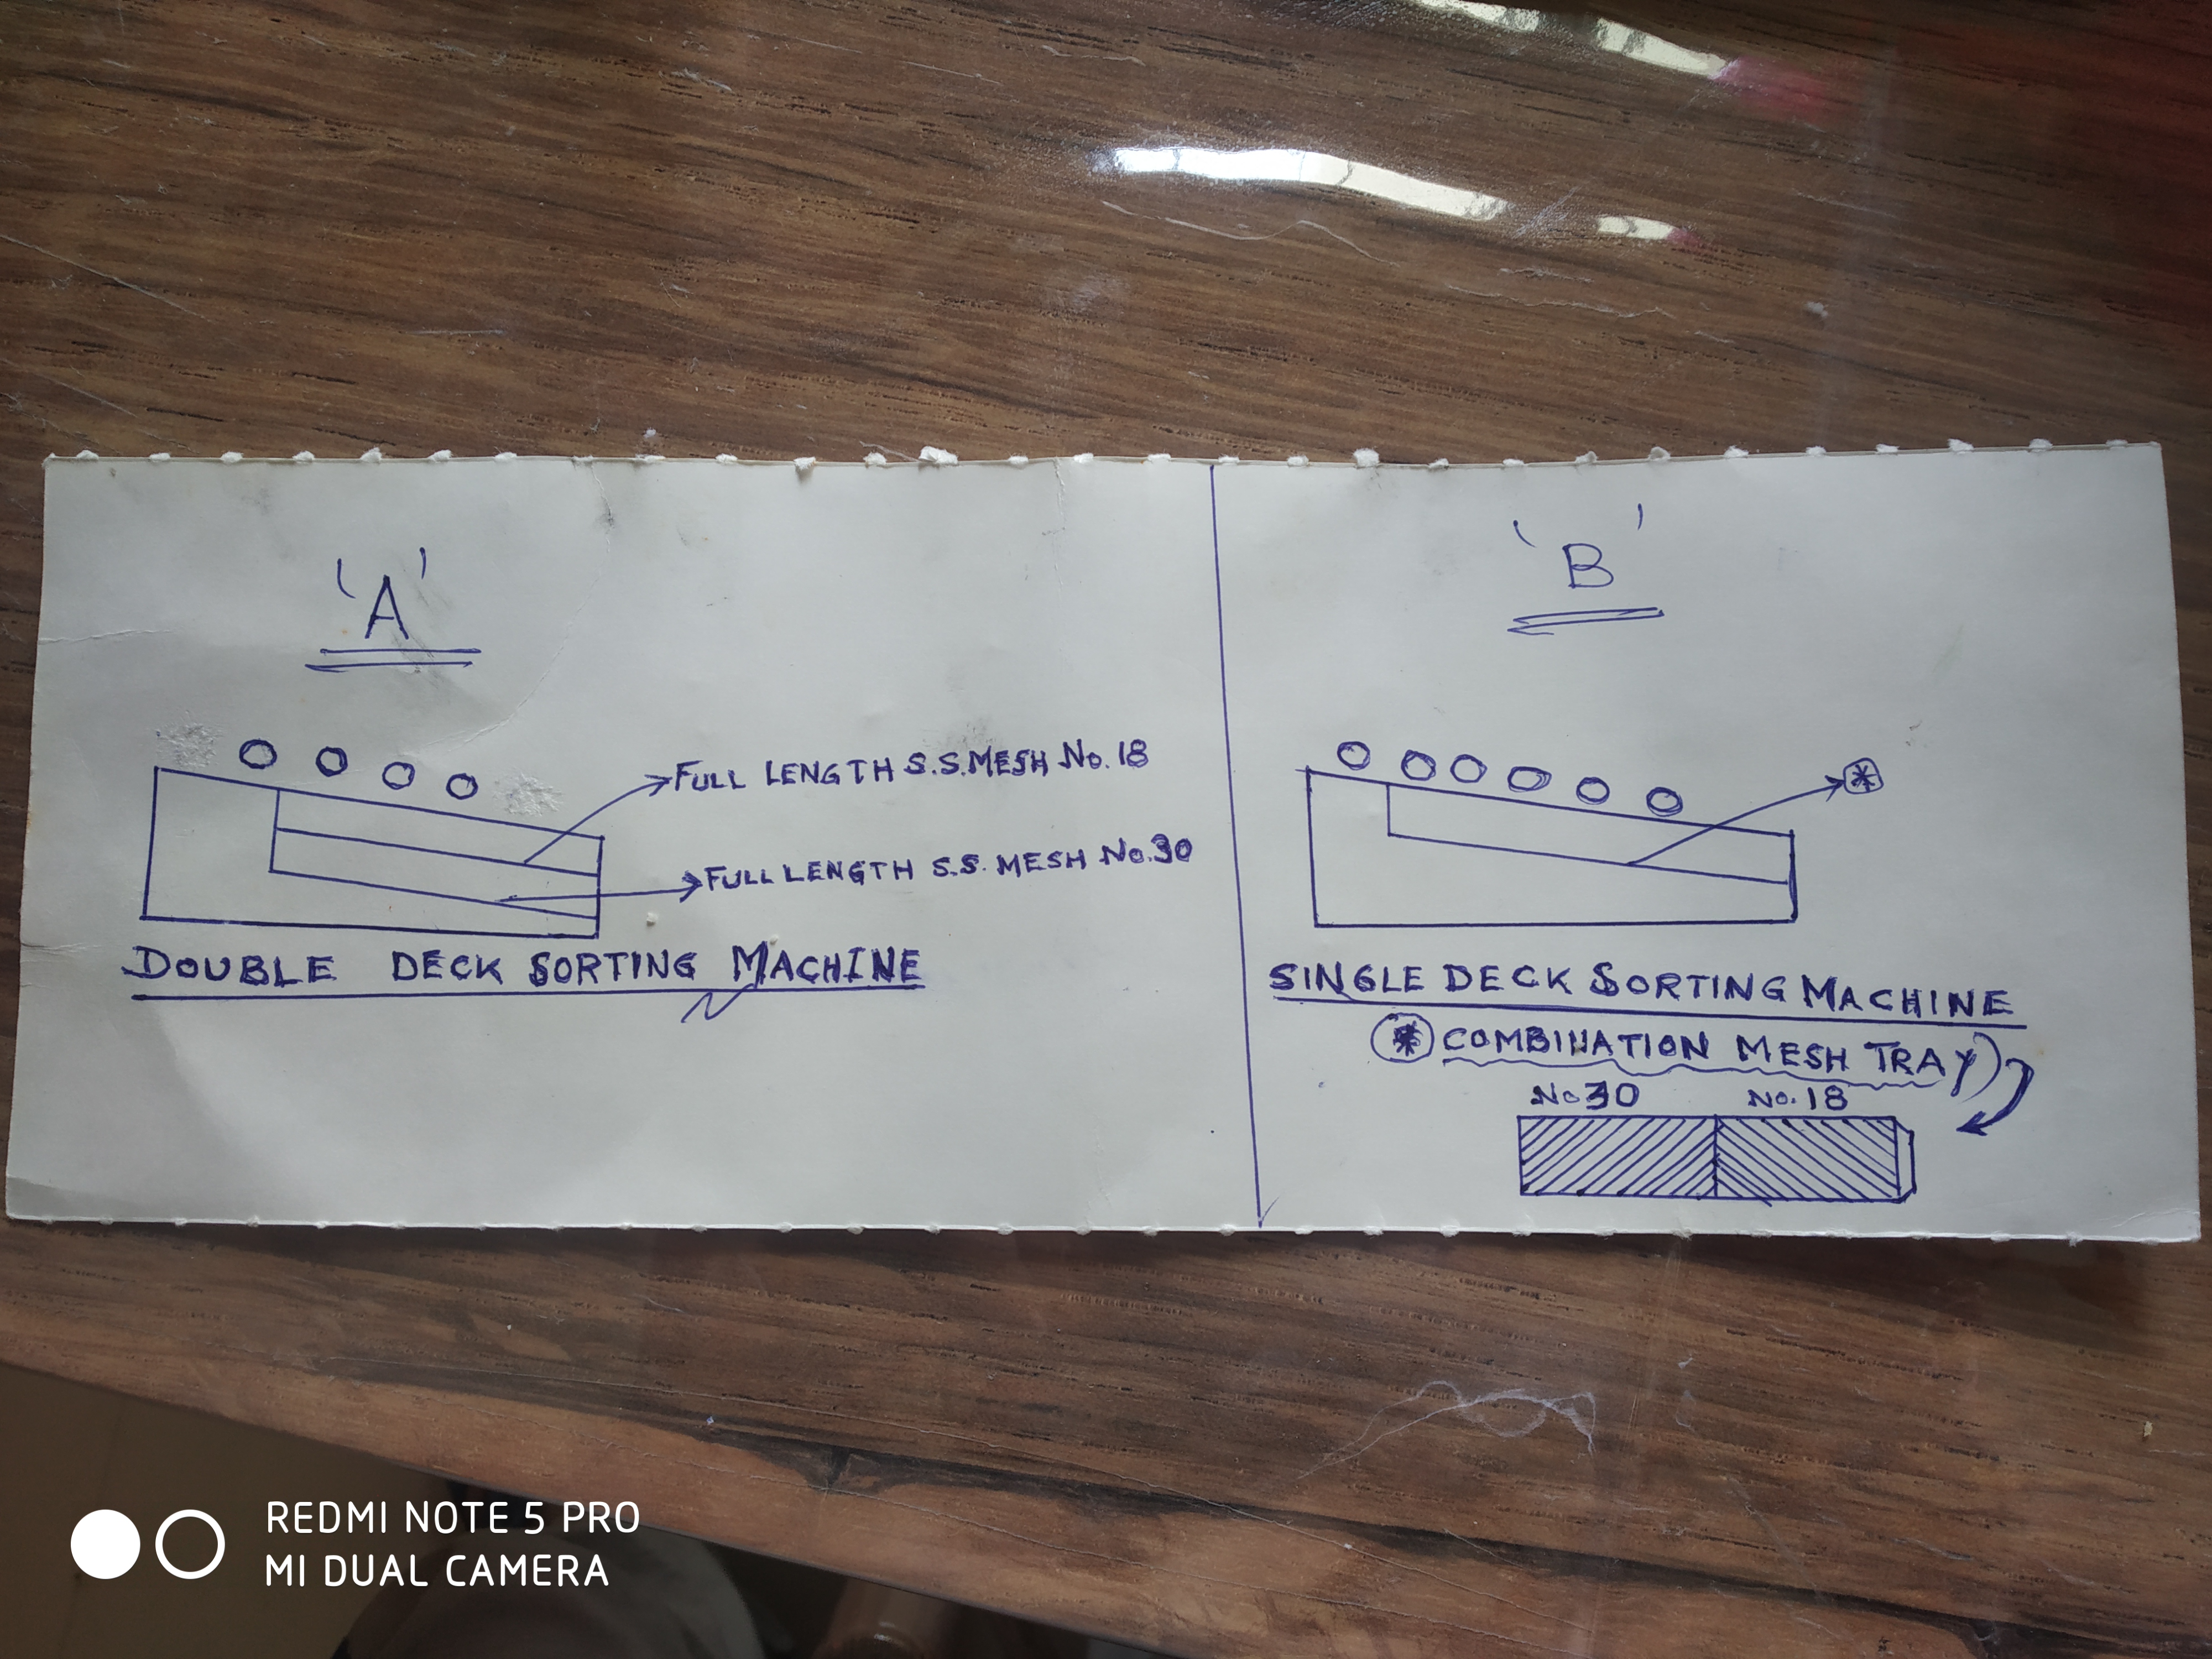 'A'
FULL LENGTH S.S. MESH No. 18
FULL LENGTH S.S. MESH No. 30
DOUBLE DECK SORTING MACHINE
'B'
*
SINGLE DECK SORTING MACHINE
* COMBINATION MESH TRAY
No 30 No. 18
REDMI NOTE 5 PRO
MI DUAL CAMERA